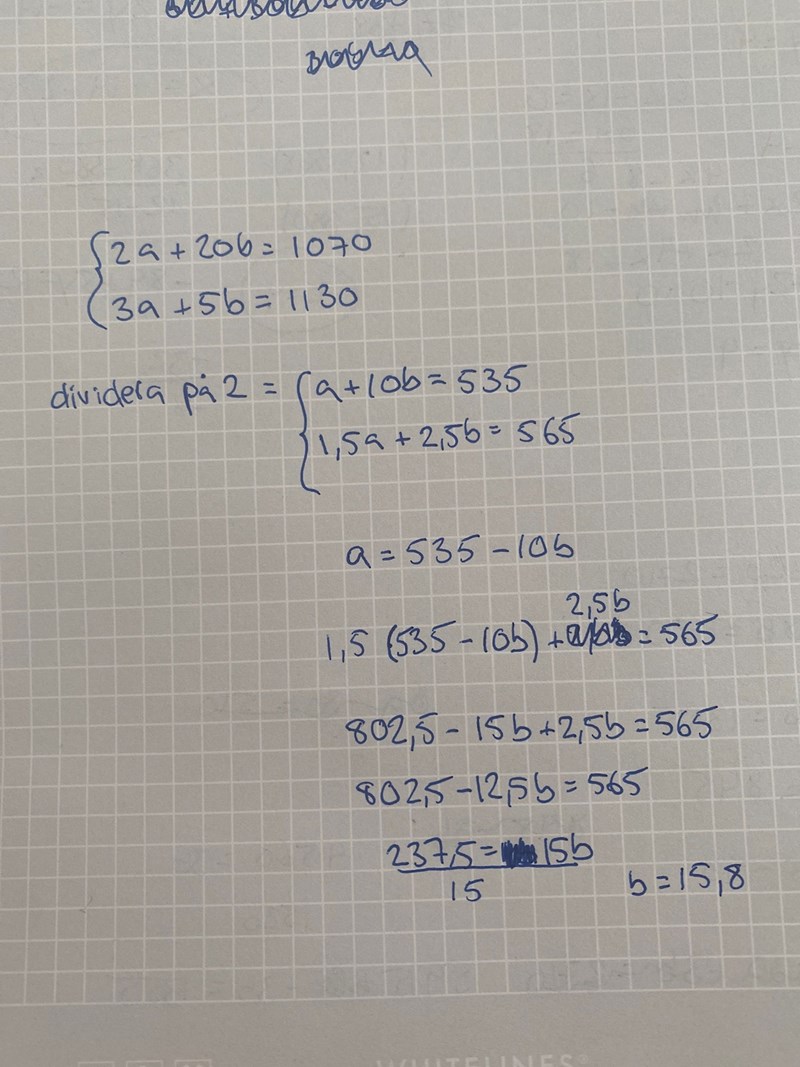 {2a + 20b = 1070
3a + 5b = 1130
dividera på 2 = {a + 10b = 535
1,5a + 2,5b = 565
a = 535 - 10b
2,5b
1,5 (535 - 10b) + = 565
802,5 - 15b + 2,5b = 565
802,5 - 12,5b = 565
237,5 = 15b
15
b = 15,8
WHITELINES®